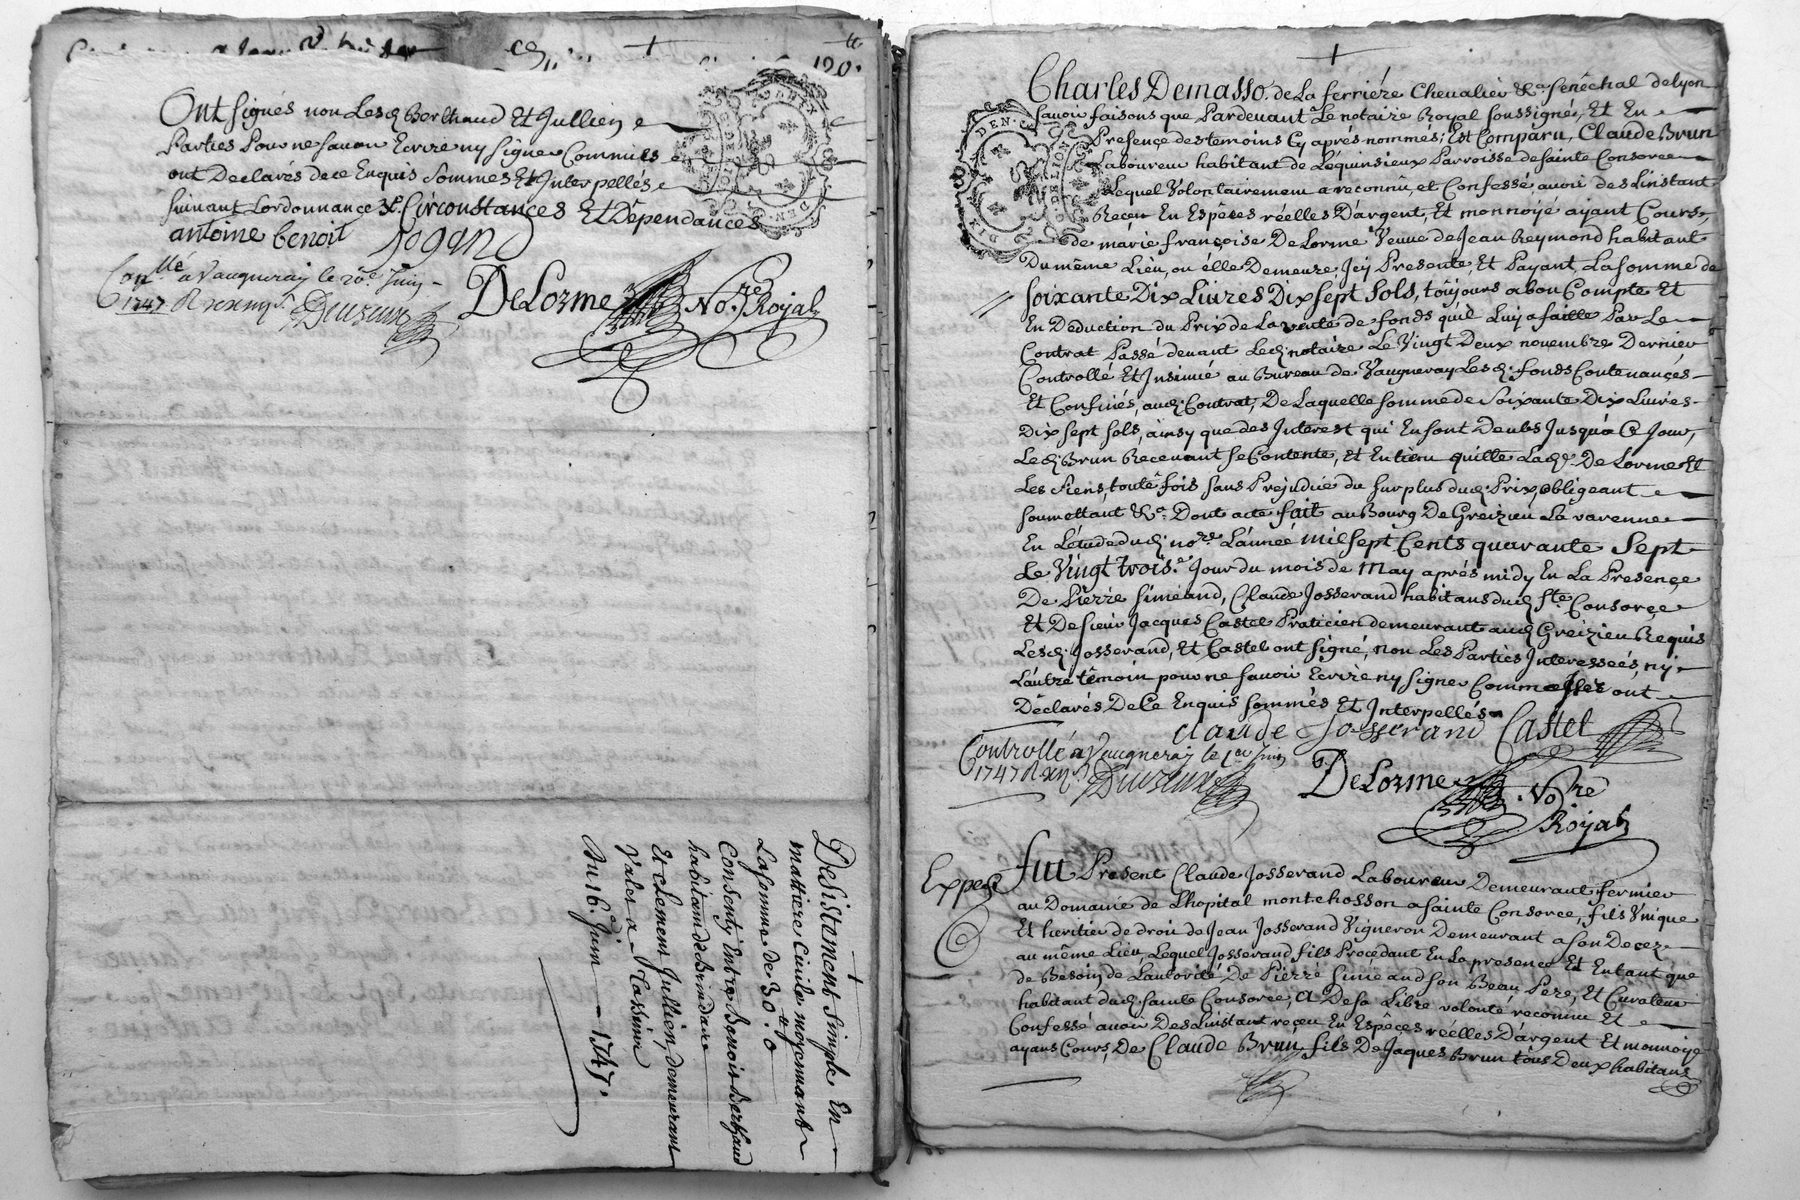 120.
Ont signés non Lesd. Berthaud Et Jullien
Parties Pour ne savoir Ecrire ny signer Comme ils
ont Declarés de ce Enquis Sommes Et Interpellés
suivant Lordonnance &c. Circonstances Et Dependances
antoine benoit
DeLorme No.re Royal
Con.llé a Vaugneray le juin
1747
Desistement simple En
mattiere Civile moyennant
La somme de 30.
Consenty Entre Benoit Berthaud
habitant de Brindas
Et Clement Jullien, demeurant
a Messimi
Du 16.e Juin - 1747.
Charles Demasso. de La ferriére Chevalier &a. sénéchal de lyon
savoir faisons que Pardevant Le notaire Royal soussigné, Et En
Presençe des temoins Cy aprés nommés; Est Comparu, Claude Brun
Laboureur habitant de Lequinsieux Parroisse de sainte Consorce
Lequel Volontairement a reconnû, et Confessé avoir des Linstant
Reçeu En Espêces réelles D'argent, Et monnoyé ayant Cours,
de márie françoise De Lorme Veuve de Jean Reymond habitant
Du même Lieu, ou élle Demeure, Icy Presente, Et Payant, La somme de
soixante Dix Livres Dix sept sols, toûjours a bon Compte Et
En Déduction du Prix de La vente de fonds quil Luy a faitte Par Le
Contrat Passé devant Led. notaire Le Vingt Deux novembre Dernier
Controllé Et Insinué au Bureau de Vaugneray Lesd. fonds Contenançés
Et Confinés, aud. Contrat, De Laquelle somme de Soixante Dix Livres
Dix sept sols, ainsy que des Interest qui En sont Deubs Jusqu'á Ce Jour,
Led. Brun Recevant se Contente, Et En tien quitte Lad. De Lorme Et
Les siens, toute fois sans Prejudice du surplus dud. Prix, obligeant
soumettant &a. Dont acte fait au Bourg De Greizieu La varenne
En Létude dud. no.re L'année mil sept Cents quarante Sept
Le Vingt trois.e Jour du mois de May aprés midy En La Presençe
De Pierre simeand, Claude Josserand habitans dud. Ste. Consorçe
Et De sieur Jacques Castel Praticien demeurant aud. Greizieu Requis
Lesd. Josserand, Et Castel ont signé, non Les Parties Interesseés, ny
L'autre têmoin pour ne savoir Ecrire ny signer Comme Jls ont
Déclarés De Ce Enquis sommés Et Interpellés
claude Josserand Castel
Controllé a Vaugneray le 1.er Juin
1747
DeLorme No.re
Royal
Exped.
fut Present Claude Josserand Laboureur Demeurant fermier
au Domaine de Lhopital montchosson a sainte Consorce, fils Vnique
Et heritier de droit de Jean Josserand Vigneron Demeurant a son Decez
au même Lieu, Lequel Josserand fils Procédant En La presence Et En tant que
de Besoin de Lautorité De Pierre simeand son Beau Pere, Et Curateur
habitant dud. sainte Consorce; a De sa Libre volonté reconnu Et
Confessé avoir Des Linstant reçeu En Espêces réelles D'argent Et monnoye
ayans Cours, De Claude Brun fils De Jaques Brun tous Deux habitans